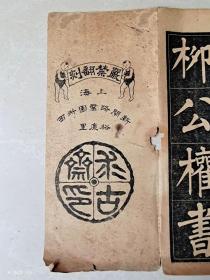 嚴禁翻刻
上海
新閘路鴛園西
裕慶里
求古齋印
柳公權書